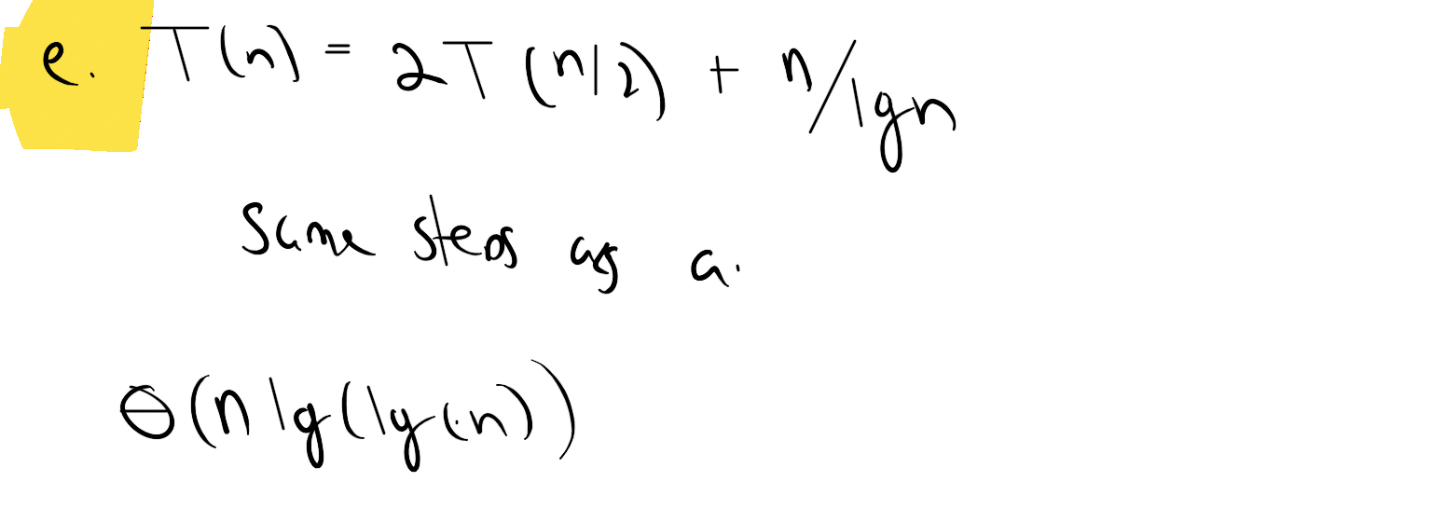 e. T(n) = 2T(n/2) + n/lgn
Same steps as a.
Θ(n lg(lg(n))